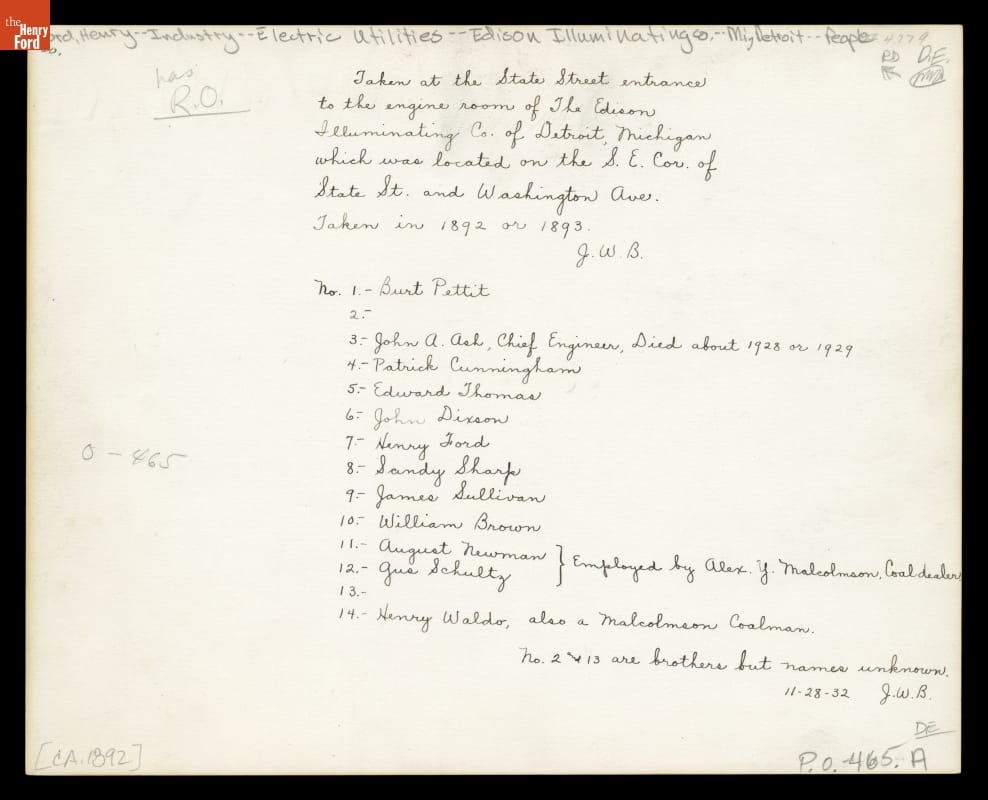 the
Henry
Ford
ord, Henry--Industry--Electric Utilities--Edison Illuminating Co.--Mi, Detroit--People
Co.
4779
has
R.O.
RD
D.E.
Taken at the State Street entrance
to the engine room of The Edison
Illuminating Co. of Detroit, Michigan
which was located on the S. E. Cor. of
State St. and Washington Ave.
Taken in 1892 or 1893.
J. W. B.
No. 1.- Burt Pettit
2.-
3.- John A. Ash, Chief Engineer, Died about 1928 or 1929
4.- Patrick Cunningham
5.- Edward Thomas
6.- John Dixson
7.- Henry Ford
8.- Sandy Sharp
9.- James Sullivan
10.- William Brown
11.- August Newman
12.- Gus Schultz } Employed by Alex. Y. Malcolmson, Coal dealer
13.-
14.- Henry Waldo, also a Malcolmson Coalman.
No. 2 & 13 are brothers but names unknown.
11-28-32 J.W.B.
O-465
DE
[CA. 1892]
P.O. 465. A